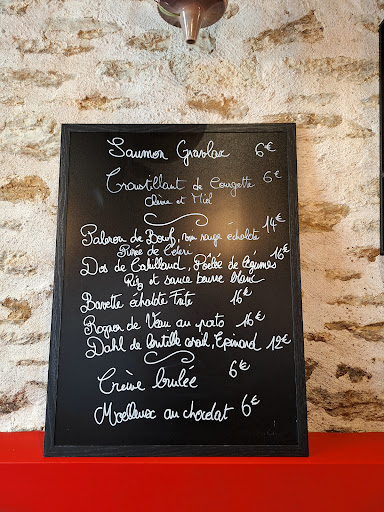 Saumon Gravlax 6€
Croustillant de Courgette 6€
Chèvre et Miel
Paleron de Bœuf, vin rouge échalote 14€
Purée de Céleri
Dos de Cabillaud, Poêlée de légumes 16€
Riz et sauce beurre blanc
Bavette échalote Frite 16€
Rognon de Veau au porto 16€
Dahl de lentille corail, Epinard 12€
Crème brulée 6€
Moelleux au chocolat 6€